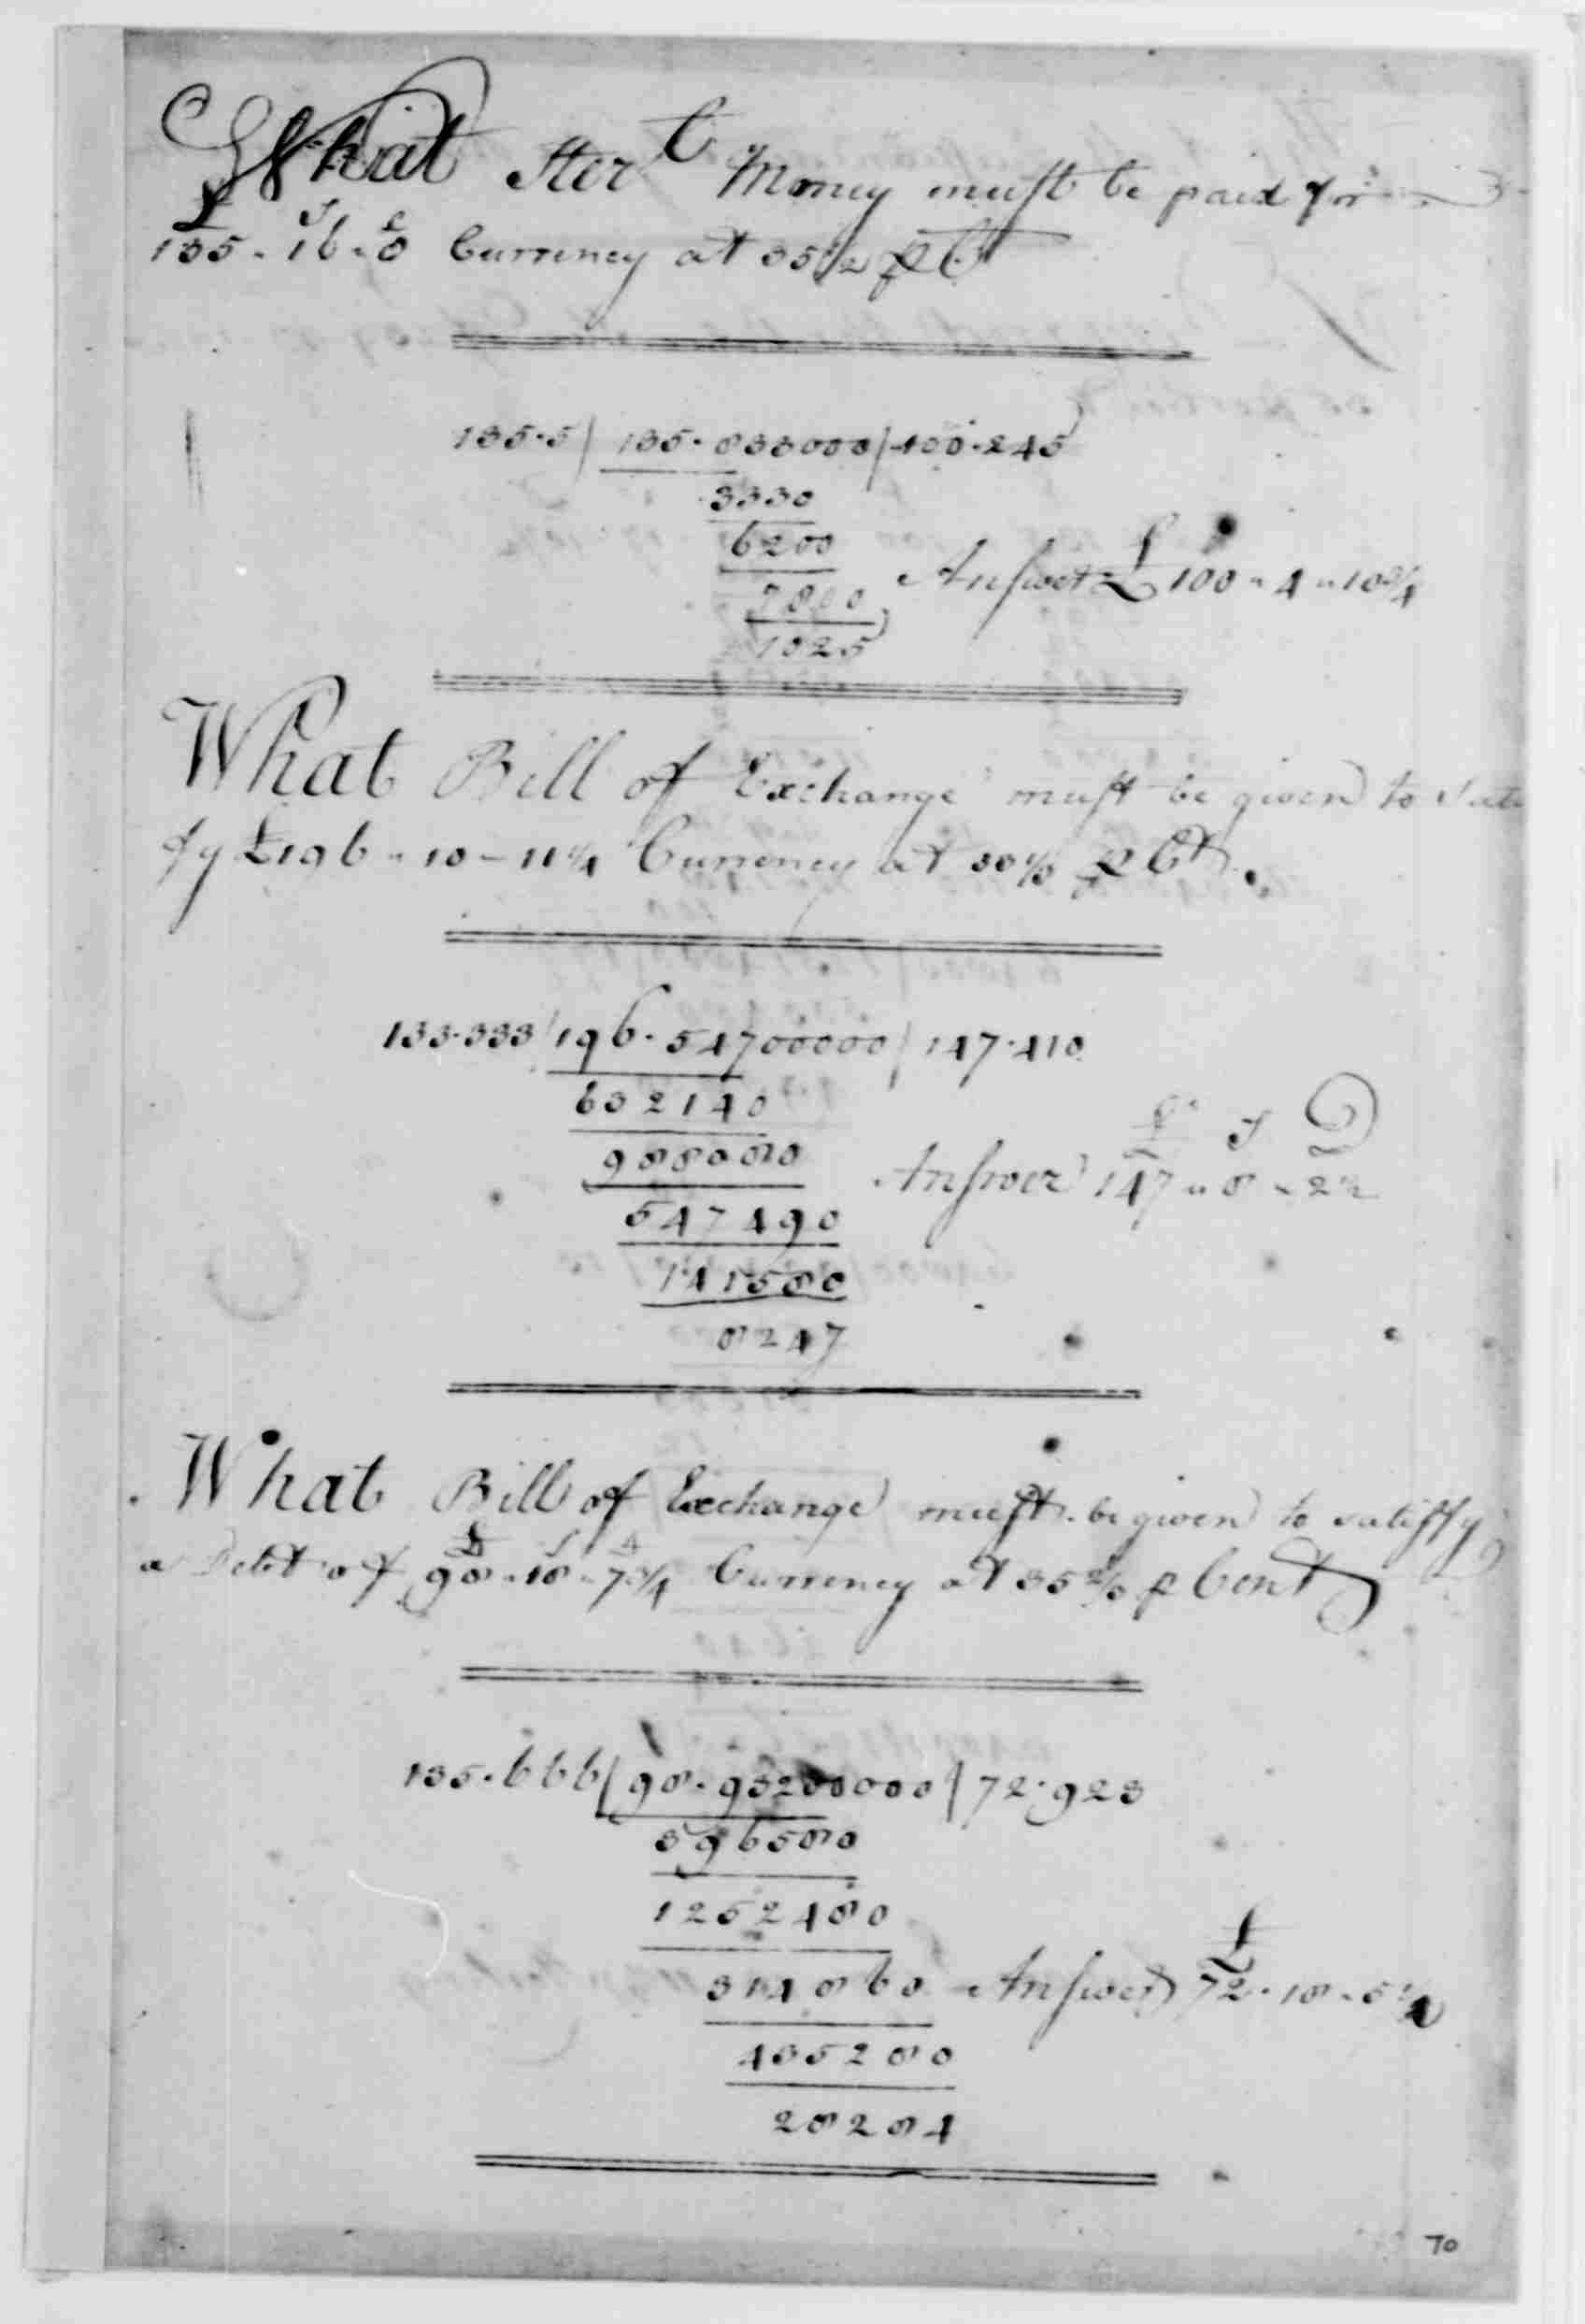 What Ster^l Money must be paid for
£ S d
135 " 16 " 8 Currency at 35 1/2 P C^t
135.5 / 135.833000 / 100.245
3330
6200
7800
1025
Answer £ 100 " 4 " 10 3/4
What Bill of Exchange must be given to Satis
fy £ 196 " 10 - 11 1/4 Currency at 33 1/3 P C^t.
133.333 / 196.54700000 / 147.410
632140
988080
547490
141580
8247
£ S D
Answer 147 " 8 " 2 1/2
What Bill of Exchange must be given to satisfy
£ S d
a Debt of 98 " 18 " 7 3/4 Currency at 35 2/3 P Cent
135.666 / 98.93200000 / 72.923
396580
1252480
314860
435280
28284
£
Answer 72 " 18 " 5 1/4
70